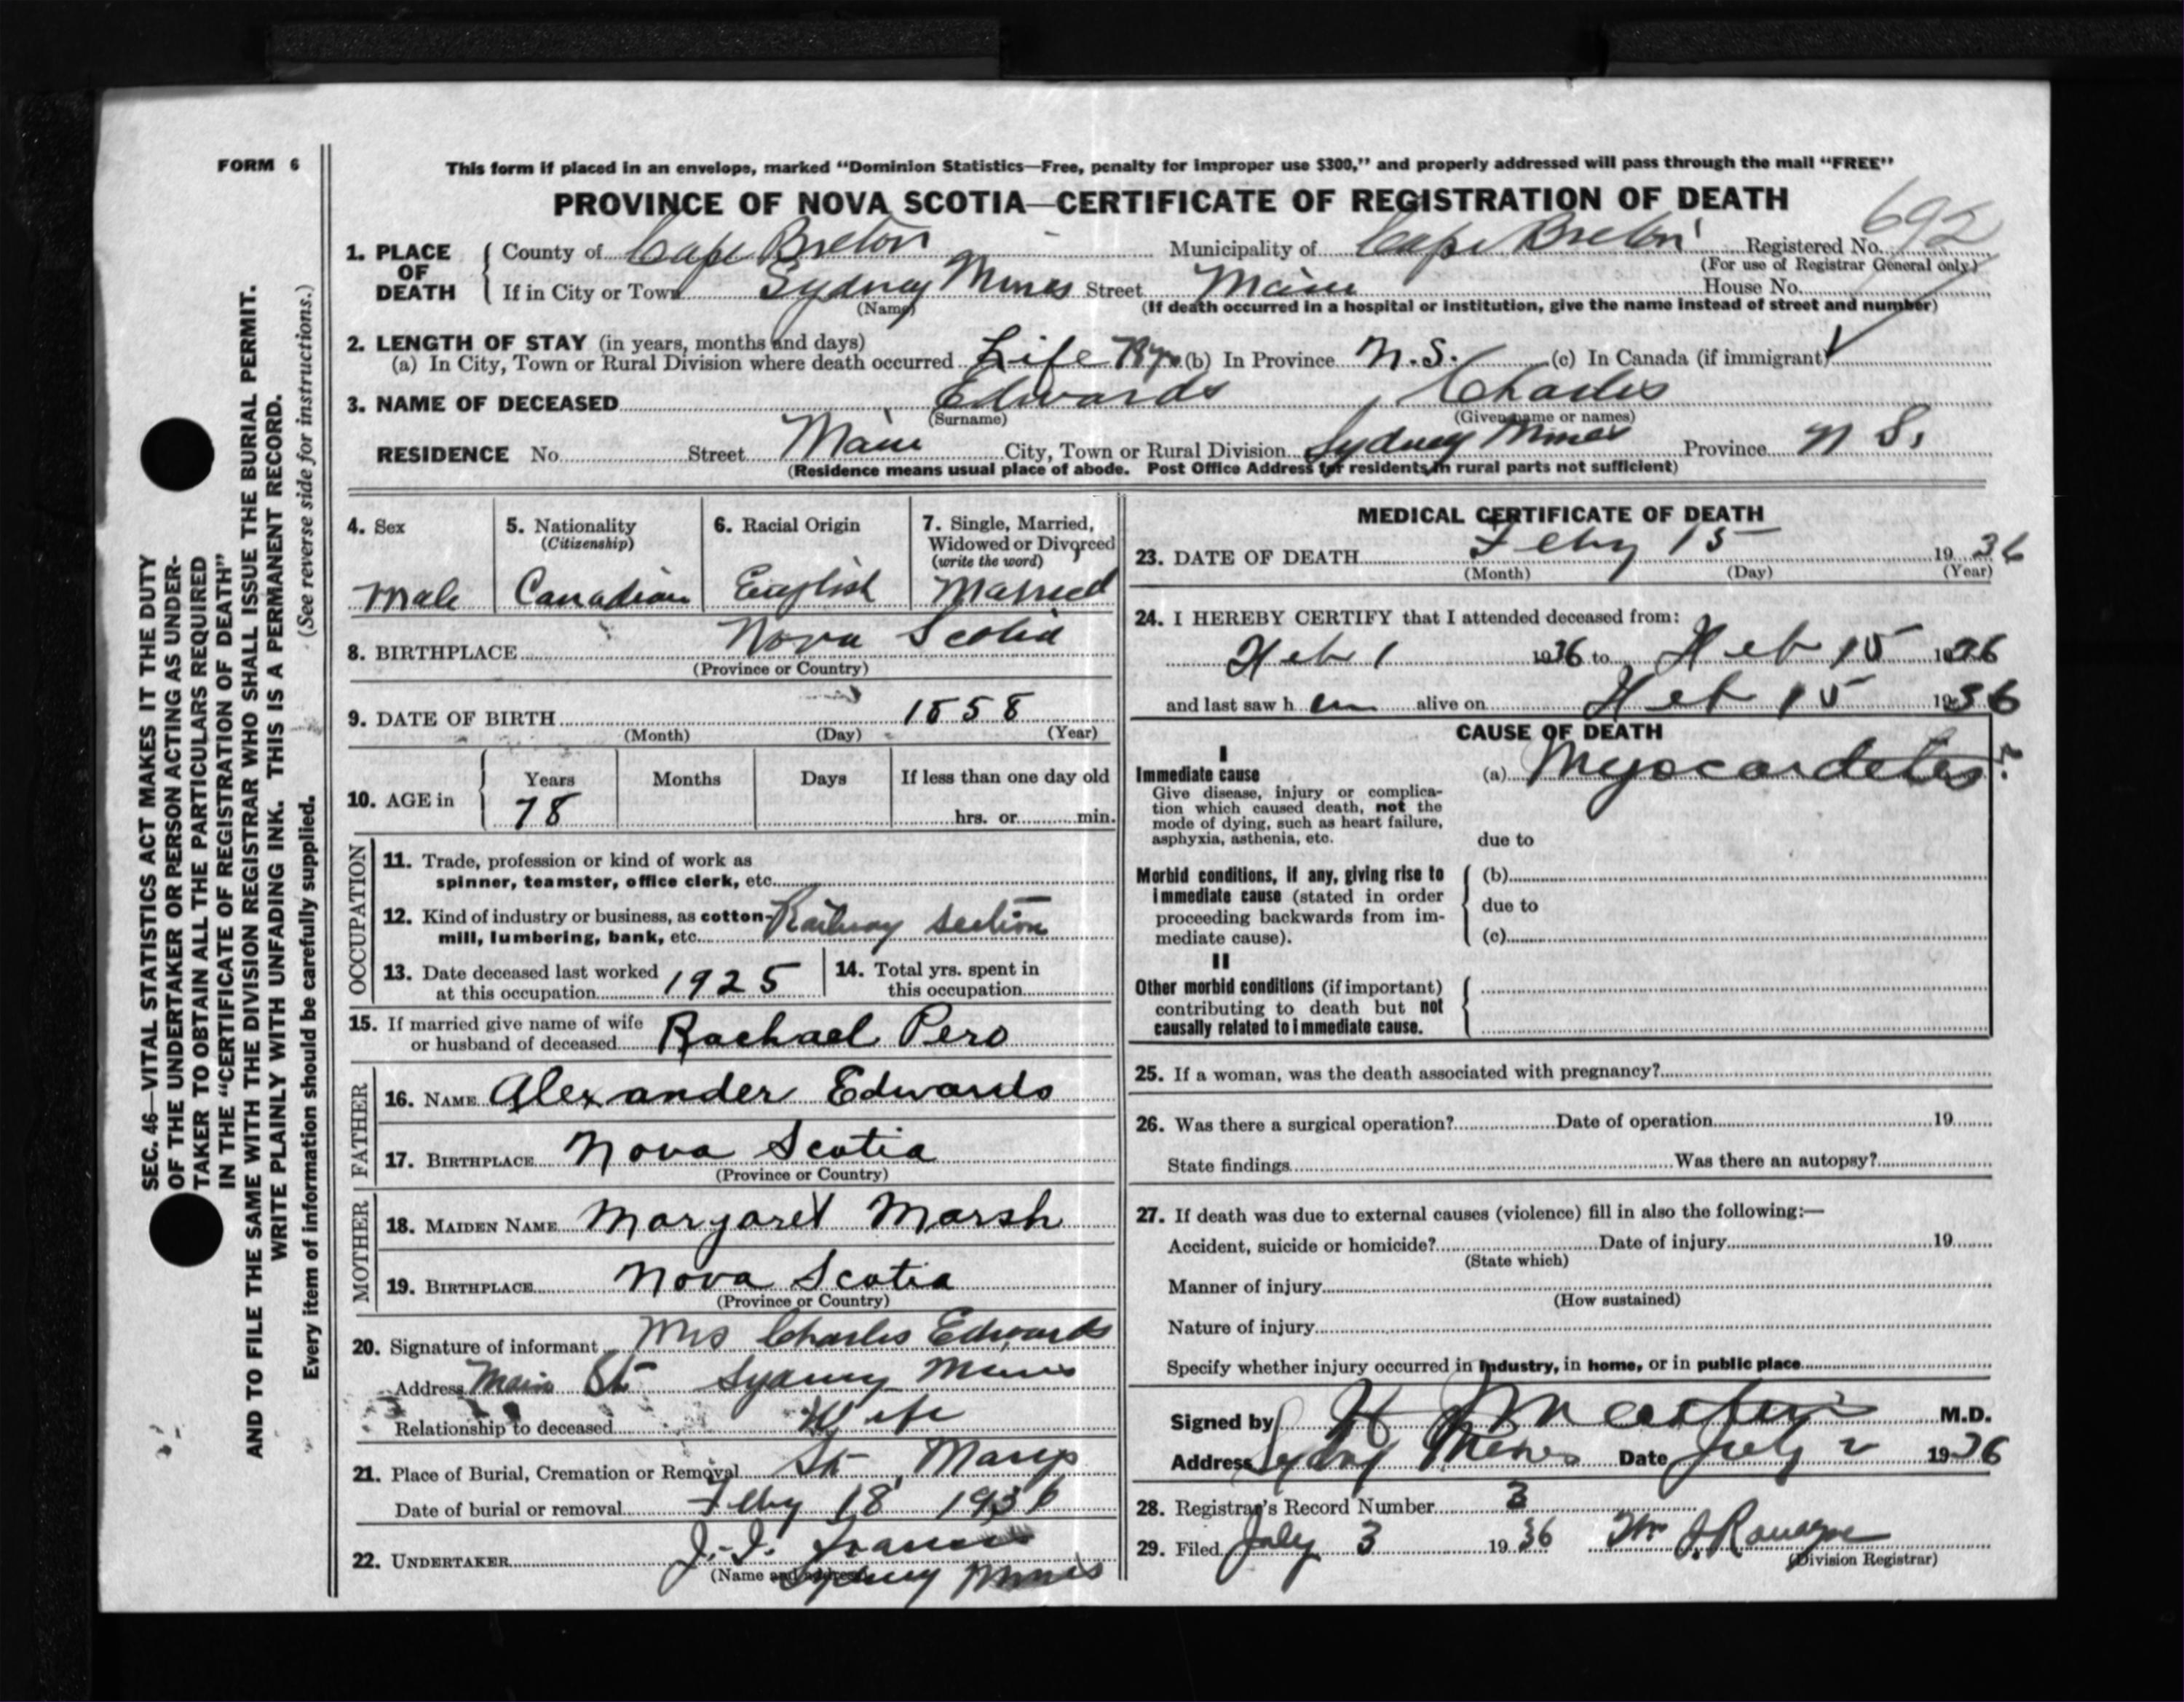 FORM 6
This form if placed in an envelope, marked “Dominion Statistics—Free, penalty for improper use $300,” and properly addressed will pass through the mail “FREE”
PROVINCE OF NOVA SCOTIA—CERTIFICATE OF REGISTRATION OF DEATH
692
1. PLACE OF DEATH { County of Cape Breton Municipality of Cape Breton Registered No.
(For use of Registrar General only)
If in City or Town Sydney Mines Street Main House No.
(Name) (If death occurred in a hospital or institution, give the name instead of street and number)
2. LENGTH OF STAY (in years, months and days)
(a) In City, Town or Rural Division where death occurred Life (b) In Province N.S. (c) In Canada (if immigrant)
3. NAME OF DECEASED Edwards, Charles
(Surname) (Given name or names)
RESIDENCE No. Street Main City, Town or Rural Division Sydney Mines Province N S.
(Residence means usual place of abode. Post Office Address for residents in rural parts not sufficient)
4. Sex
Male
5. Nationality
(Citizenship)
Canadian
6. Racial Origin
English
7. Single, Married,
Widowed or Divorced
(write the word)
Married
8. BIRTHPLACE Nova Scotia
(Province or Country)
9. DATE OF BIRTH 1858
(Month) (Day) (Year)
10. AGE in { Years Months Days If less than one day old
78 hrs. or min.
OCCUPATION
11. Trade, profession or kind of work as
spinner, teamster, office clerk, etc.
12. Kind of industry or business, as cotton- Railway section
mill, lumbering, bank, etc.
13. Date deceased last worked
at this occupation 1925
14. Total yrs. spent in
this occupation
15. If married give name of wife
or husband of deceased Rachael Pero
FATHER
16. NAME Alexander Edwards
17. BIRTHPLACE Nova Scotia
(Province or Country)
MOTHER
18. MAIDEN NAME Margaret Marsh
19. BIRTHPLACE Nova Scotia
(Province or Country)
20. Signature of informant Mrs Charles Edwards
Address Main St Sydney Mines
Relationship to deceased Wife
21. Place of Burial, Cremation or Removal St. Marys
Date of burial or removal Feby 18 1936
22. UNDERTAKER J. J.
(Name and address) Sydney Mines
MEDICAL CERTIFICATE OF DEATH
23. DATE OF DEATH Feby 15 1936
(Month) (Day) (Year)
24. I HEREBY CERTIFY that I attended deceased from:
Feb 1 1936 to Feb 15 1936
and last saw h im alive on Feb 15 1936
CAUSE OF DEATH
I
Immediate cause (a) Myocardetes
Give disease, injury or complica-
tion which caused death, not the
mode of dying, such as heart failure,
asphyxia, asthenia, etc. due to
Morbid conditions, if any, giving rise to { (b)
immediate cause (stated in order due to
proceeding backwards from im-
mediate cause). (c)
II
Other morbid conditions (if important)
contributing to death but not
causally related to immediate cause.
25. If a woman, was the death associated with pregnancy?
26. Was there a surgical operation? Date of operation 19
State findings Was there an autopsy?
27. If death was due to external causes (violence) fill in also the following:—
Accident, suicide or homicide? Date of injury 19
(State which)
Manner of injury
(How sustained)
Nature of injury
Specify whether injury occurred in industry, in home, or in public place
Signed by M.D.
Address Sydney Mines Date July 2 1936
28. Registrar's Record Number 3
29. Filed July 3 1936 Wm
(Division Registrar)
SEC. 46—VITAL STATISTICS ACT MAKES IT THE DUTY
OF THE UNDERTAKER OR PERSON ACTING AS UNDER-
TAKER TO OBTAIN ALL THE PARTICULARS REQUIRED
IN THE “CERTIFICATE OF REGISTRATION OF DEATH”
AND TO FILE THE SAME WITH THE DIVISION REGISTRAR WHO SHALL ISSUE THE BURIAL PERMIT.
WRITE PLAINLY WITH UNFADING INK. THIS IS A PERMANENT RECORD.
Every item of information should be carefully supplied. (See reverse side for instructions.)